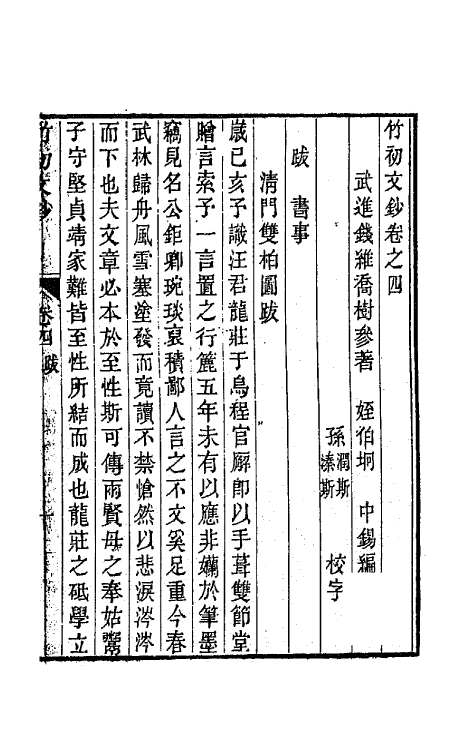 竹初文鈔卷之四
武進錢維喬樹參著　姪伯坰　中鍚編
孫潤斯溱斯　校字
跋　書事
清門雙柏圖跋
歲己亥予識汪君龍莊于烏程官廨即以手葺雙節堂
贈言索予一言置之行簏五年未有以應非嬾於筆墨
竊見名公鉅卿琬琰裒積鄙人言之不文奚足重今春
武林歸舟風雪塞塗發而竟讀不禁愴然以悲淚涔涔
而下也夫文章必本於至性斯可傳兩賢母之奉姑鬻
子守堅貞靖家難皆至性所結而成也龍莊之砥學立
竹初文鈔　卷四　跋